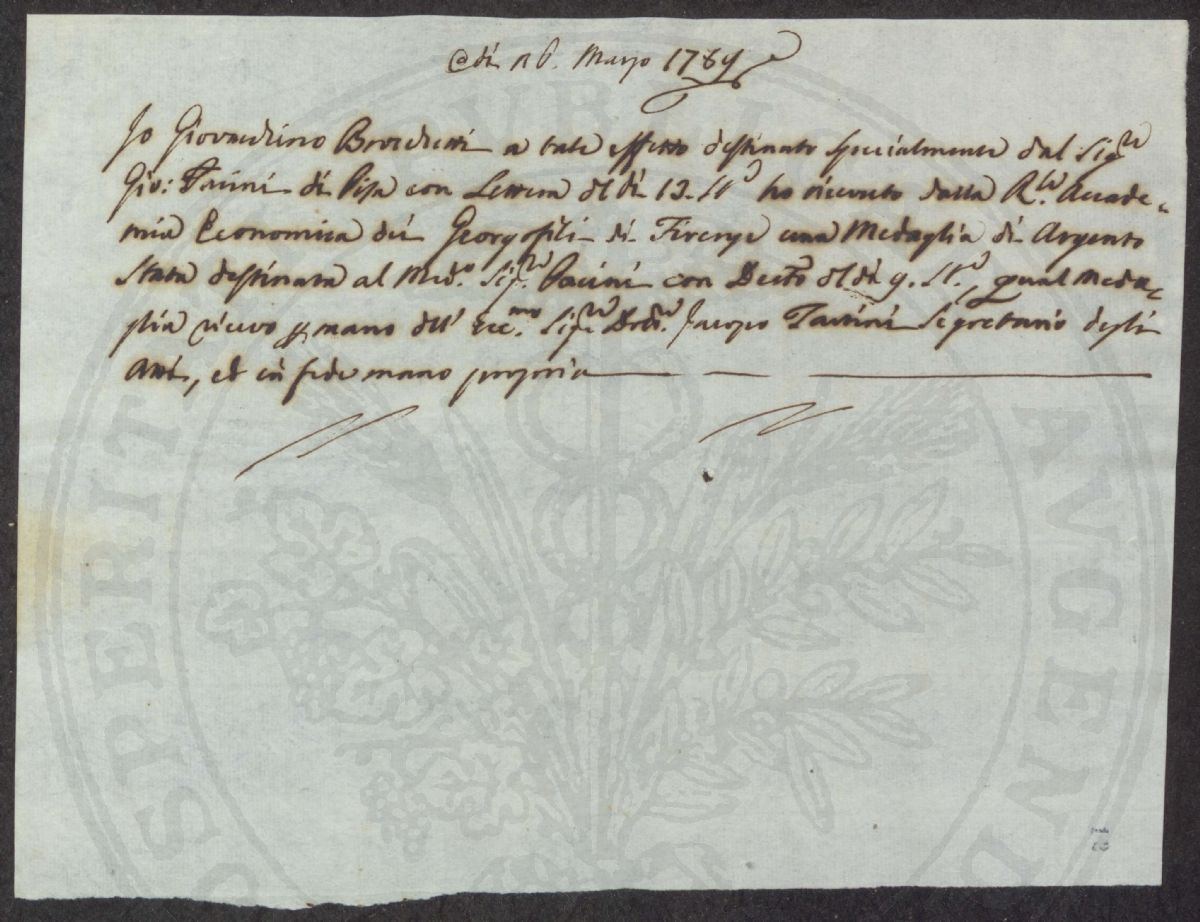 Adì 16. Marzo 1789
Io Giovacchino Brocchetti a tale effetto destinato specialmente dal Sigre
Gio: Pacini di Pisa con Lettera del dì 13. Sto ho ricevuto dalla Rle Accade-
mia Economica dei Georgofili di Firenze una Medaglia di Argento
Stata destinata al Medo. Sigre Pacini con Decto del dì 9. Sto, qual Meda-
glia ricevo per mano dell' Eccmo Sigre Dre Jacopo Tartini Segretario degli
Atti, ed in fede mano propria
PROSPERITATI PUBLICAE AUGENDAE